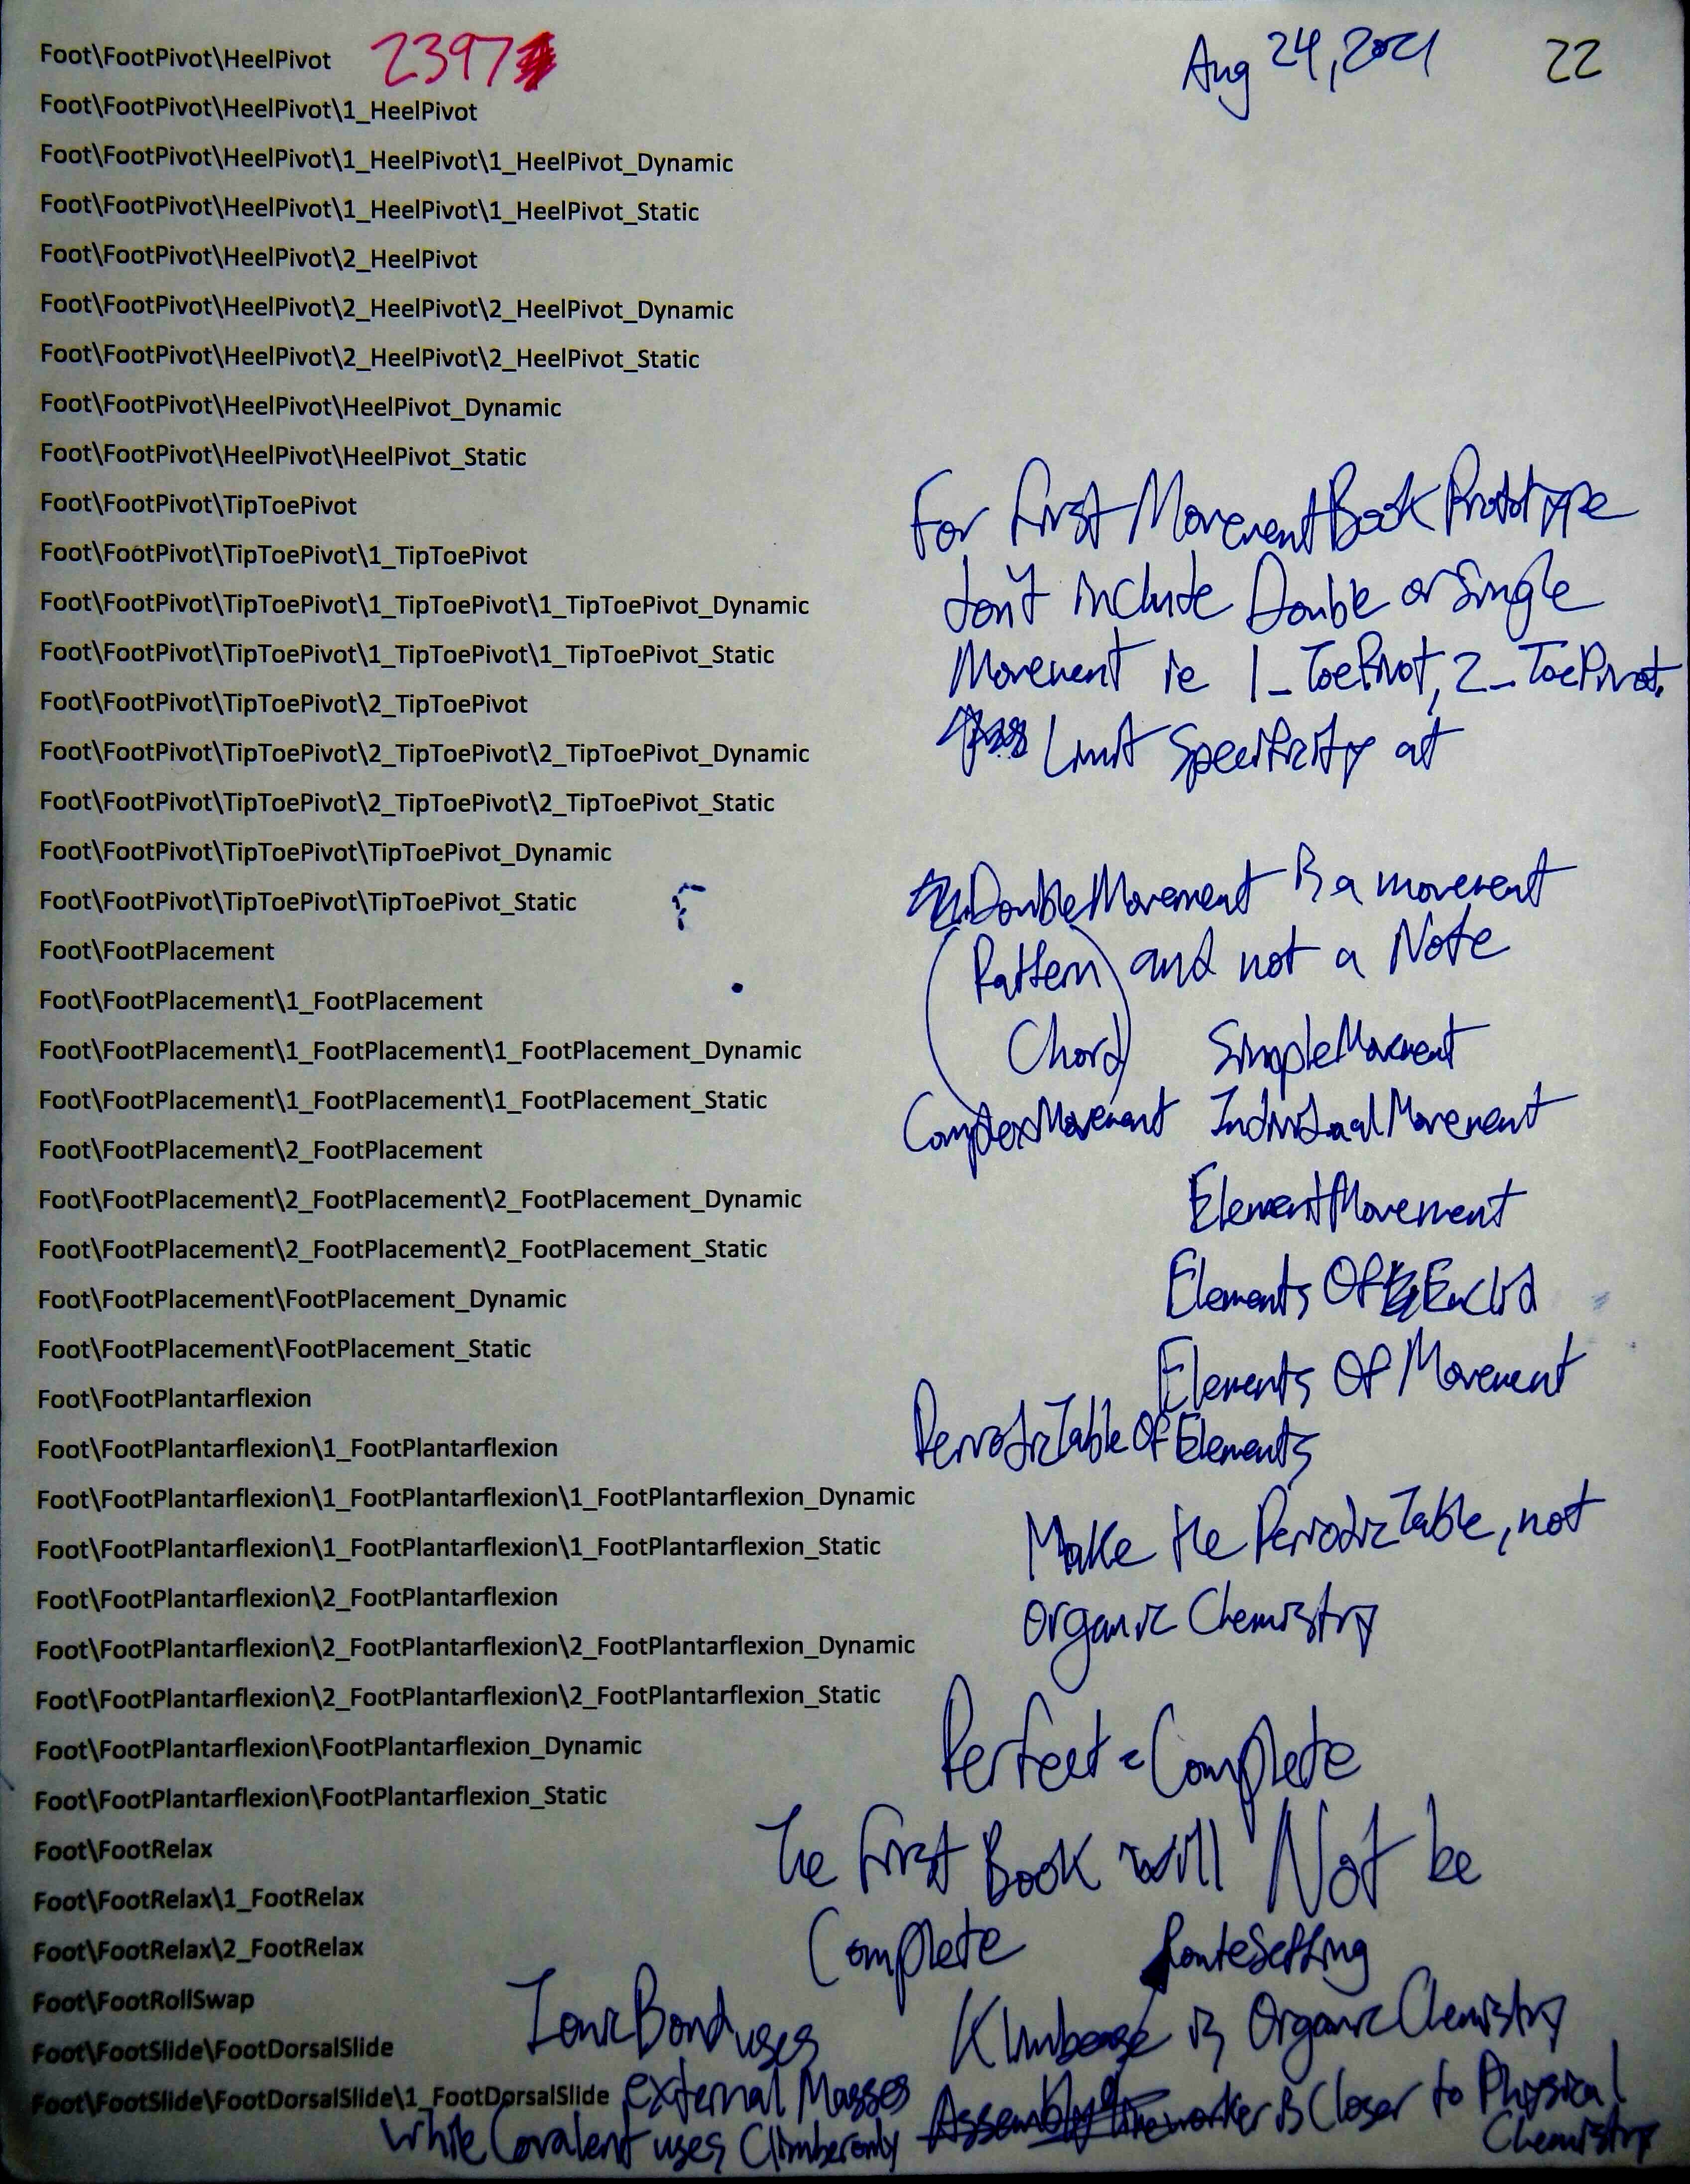 Foot\FootPivot\HeelPivot 2397 Aug 24, 2021 22
Foot\FootPivot\HeelPivot\1_HeelPivot
Foot\FootPivot\HeelPivot\1_HeelPivot\1_HeelPivot_Dynamic
Foot\FootPivot\HeelPivot\1_HeelPivot\1_HeelPivot_Static
Foot\FootPivot\HeelPivot\2_HeelPivot
Foot\FootPivot\HeelPivot\2_HeelPivot\2_HeelPivot_Dynamic
Foot\FootPivot\HeelPivot\2_HeelPivot\2_HeelPivot_Static
Foot\FootPivot\HeelPivot\HeelPivot_Dynamic
Foot\FootPivot\HeelPivot\HeelPivot_Static
Foot\FootPivot\TipToePivot
Foot\FootPivot\TipToePivot\1_TipToePivot
Foot\FootPivot\TipToePivot\1_TipToePivot\1_TipToePivot_Dynamic
Foot\FootPivot\TipToePivot\1_TipToePivot\1_TipToePivot_Static
Foot\FootPivot\TipToePivot\2_TipToePivot
Foot\FootPivot\TipToePivot\2_TipToePivot\2_TipToePivot_Dynamic
Foot\FootPivot\TipToePivot\2_TipToePivot\2_TipToePivot_Static
Foot\FootPivot\TipToePivot\TipToePivot_Dynamic
Foot\FootPivot\TipToePivot\TipToePivot_Static
Foot\FootPlacement
Foot\FootPlacement\1_FootPlacement
Foot\FootPlacement\1_FootPlacement\1_FootPlacement_Dynamic
Foot\FootPlacement\1_FootPlacement\1_FootPlacement_Static
Foot\FootPlacement\2_FootPlacement
Foot\FootPlacement\2_FootPlacement\2_FootPlacement_Dynamic
Foot\FootPlacement\2_FootPlacement\2_FootPlacement_Static
Foot\FootPlacement\FootPlacement_Dynamic
Foot\FootPlacement\FootPlacement_Static
Foot\FootPlantarflexion
Foot\FootPlantarflexion\1_FootPlantarflexion
Foot\FootPlantarflexion\1_FootPlantarflexion\1_FootPlantarflexion_Dynamic
Foot\FootPlantarflexion\1_FootPlantarflexion\1_FootPlantarflexion_Static
Foot\FootPlantarflexion\2_FootPlantarflexion
Foot\FootPlantarflexion\2_FootPlantarflexion\2_FootPlantarflexion_Dynamic
Foot\FootPlantarflexion\2_FootPlantarflexion\2_FootPlantarflexion_Static
Foot\FootPlantarflexion\FootPlantarflexion_Dynamic
Foot\FootPlantarflexion\FootPlantarflexion_Static
Foot\FootRelax
Foot\FootRelax\1_FootRelax
Foot\FootRelax\2_FootRelax
Foot\FootRollSwap
Foot\FootSlide\FootDorsalSlide
Foot\FootSlide\FootDorsalSlide\1_FootDorsalSlide
For First MovementBook Prototype
don't include Double or Single
Movement ie 1_ToePivot, 2_ToePivot.
Limit Specificity at
DoubleMovement is a movement
(Pattern) and not a Note
Chord SimpleMovement
ComplexMovement IndividualMovement
ElementMovement
Elements Of Euclid
Elements Of Movement
PeriodicTable Of Elements
Make the PeriodicTable, not
Organic Chemistry
Perfect = Complete
The First Book will Not be
Complete RouteSetting
IonicBond uses is Organic Chemistry
external Masses Assembly line worker is Closer to Physical
While Covalent uses Climber only Chemistry